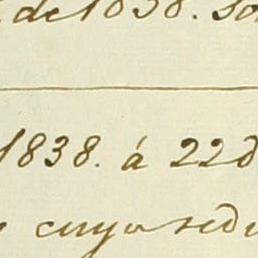 de 1838. So
1838. á 22 d
cuyo redu